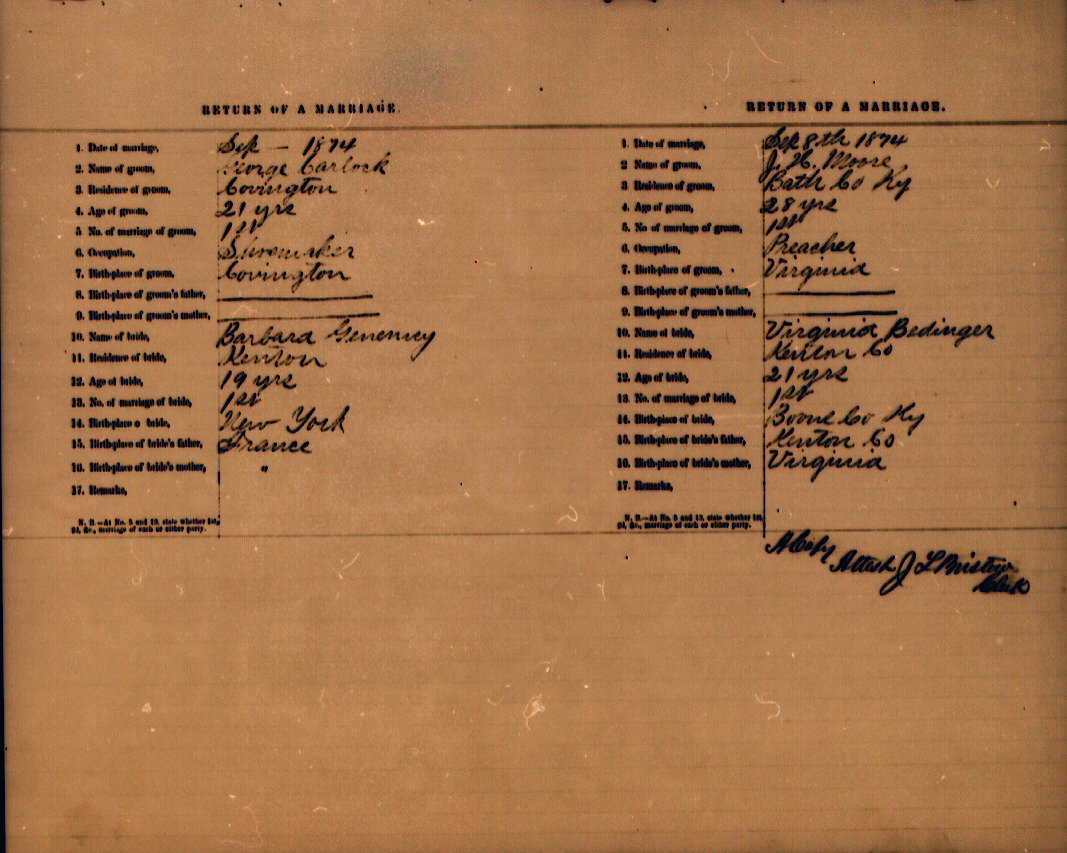 RETURN OF A MARRIAGE.
1. Date of marriage, Sep — 1874
2. Name of groom, George Carlock
3. Residence of groom, Covington
4. Age of groom, 21 yrs
5 No. of marriage of groom, 1st
6. Occupation, Shoemaker
7. Birth-place of groom, Covington
8. Birth-place of groom's father, ——
9. Birth-place of groom's mother, ——
10. Name of bride, Barbara
11. Residence of bride, Kenton
12. Age of bride, 19 yrs
13. No. of marriage of bride, 1st
14. Birth-place o bride, New York
15. Birth-place of bride's father, France
16. Birth-place of bride's mother, "
17. Remarks,
N. B.—At No. 5 and 13, state whether 1st,
2d, &c., marriage of each or either party.
RETURN OF A MARRIAGE.
1. Date of marriage, Sep 8th 1874
2 Name of groom, J. H. Moore
3 Residence of groom, Bath Co Ky
4. Age of groom, 28 yrs
5. No. of marriage of groom, 1st
6. Occupation, Preacher
7. Birth-place of groom, Virginia
8. Birth-place of groom's father, ——
9. Birth-place of groom's mother, ——
10. Name of bride, Virginia Bedinger
11. Residence of bride, Kenton Co
12. Age of bride, 21 yrs
13 No. of marriage of bride, 1st
14. Birth-place of bride, Boone Co Ky
15. Birth-place of bride's father, Kenton Co
16. Birth-place of bride's mother, Virginia
17. Remarks,
N. B.—At No. 5 and 13, state whether 1st,
2d, &c., marriage of each or either party.
A Copy
Attest J L Bristow
Clerk